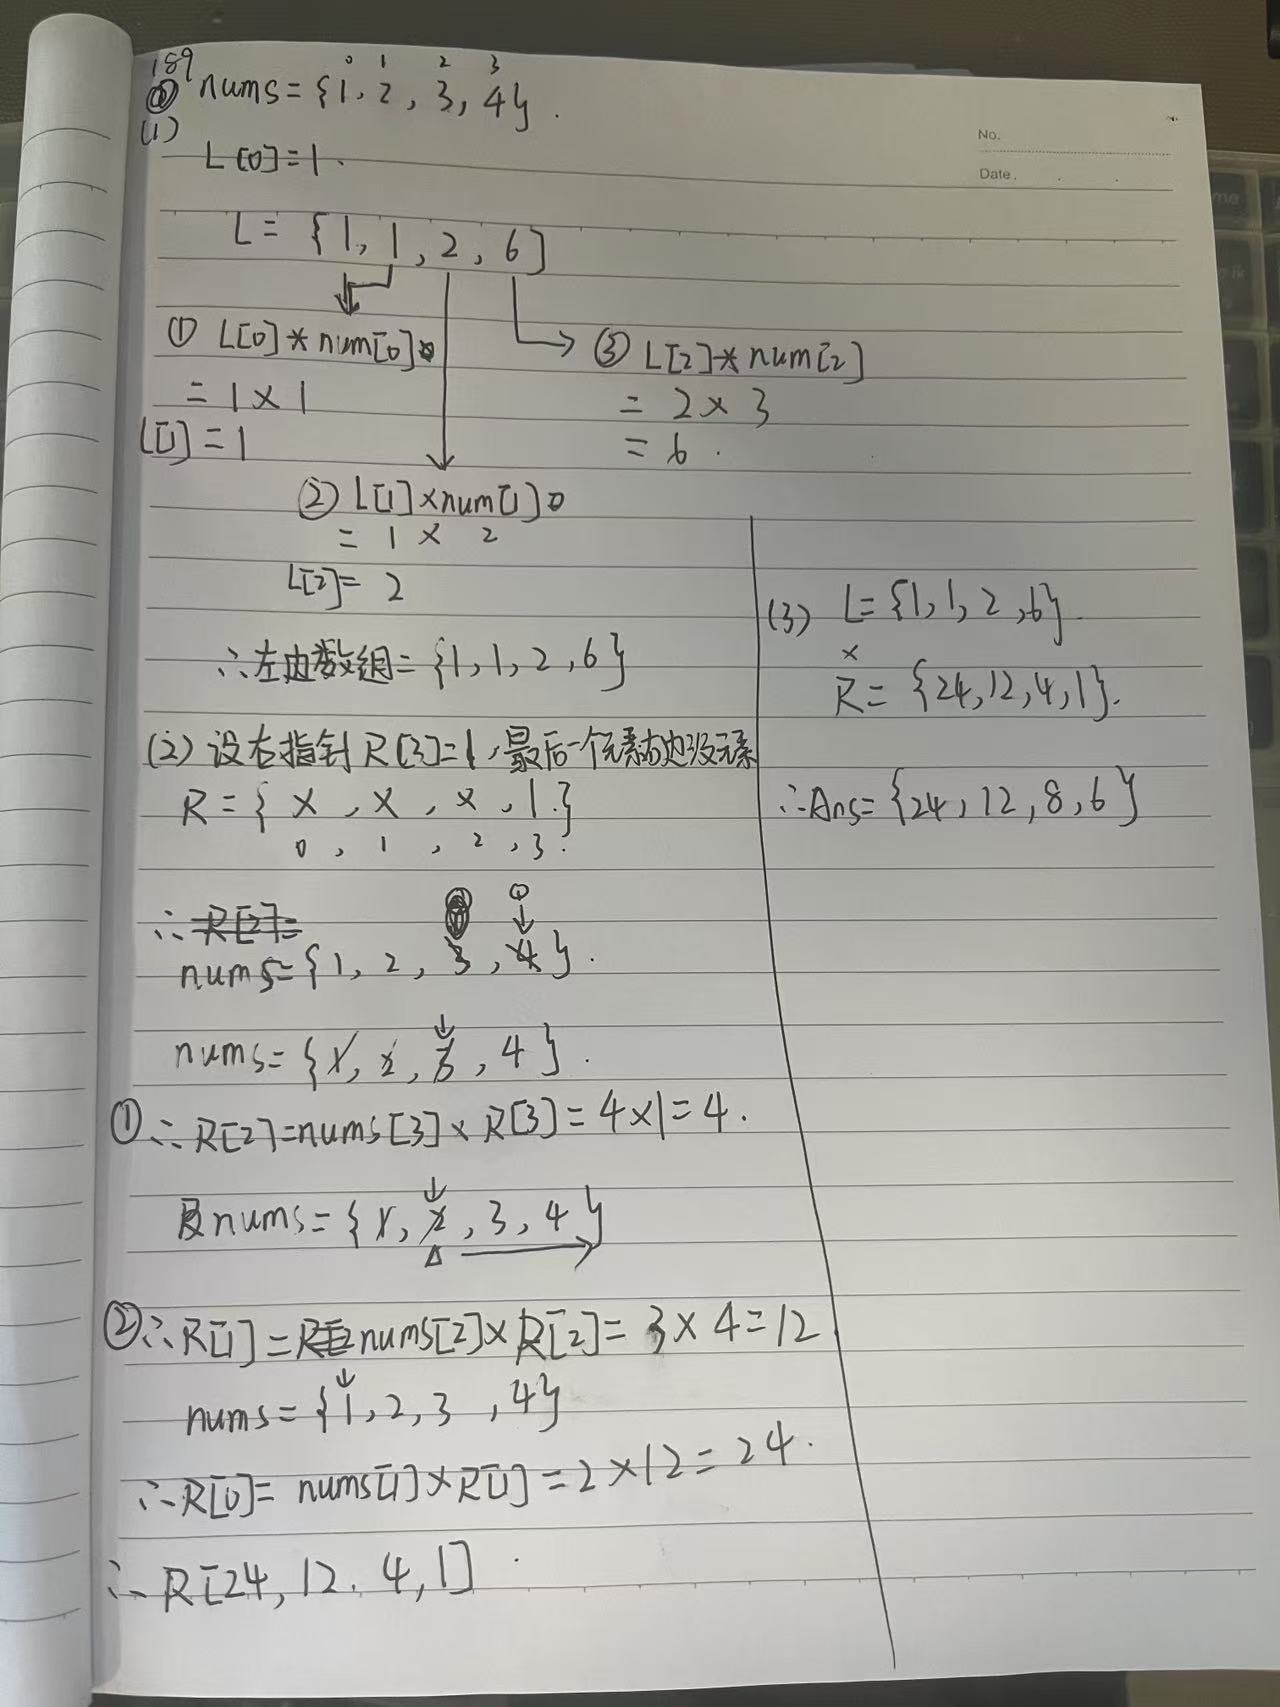 189
0 1 2 3
nums={1,2,3,4}.
(1)
L[0]=1.
L={1,1,2,6]
① L[0]*num[0]
=1×1
L[1]=1
② L[1]×num[1]
=1×2
L[2]=2
③ L[2]*num[2]
=2×3
=6.
∴左边数组={1,1,2,6}
(2) 设右指针R[3]=1,最后一个元素右边没元素
R={x,x,x,1.}
0,1,2,3.
∴R[2]=
nums={1,2,3,4}.
nums={1,2,3,4}.
①∴R[2]=nums[3]×R[3]=4×1=4.
nums={1,2,3,4}
②∴R[1]=nums[2]×R[2]=3×4=12
nums={1,2,3,4}
∴R[0]=nums[1]×R[1]=2×12=24.
∴R[24,12.4,1]
(3) L={1,1,2,6}
×
R={24,12,4,1}.
∴Ans={24,12,8,6}
No.
Date.